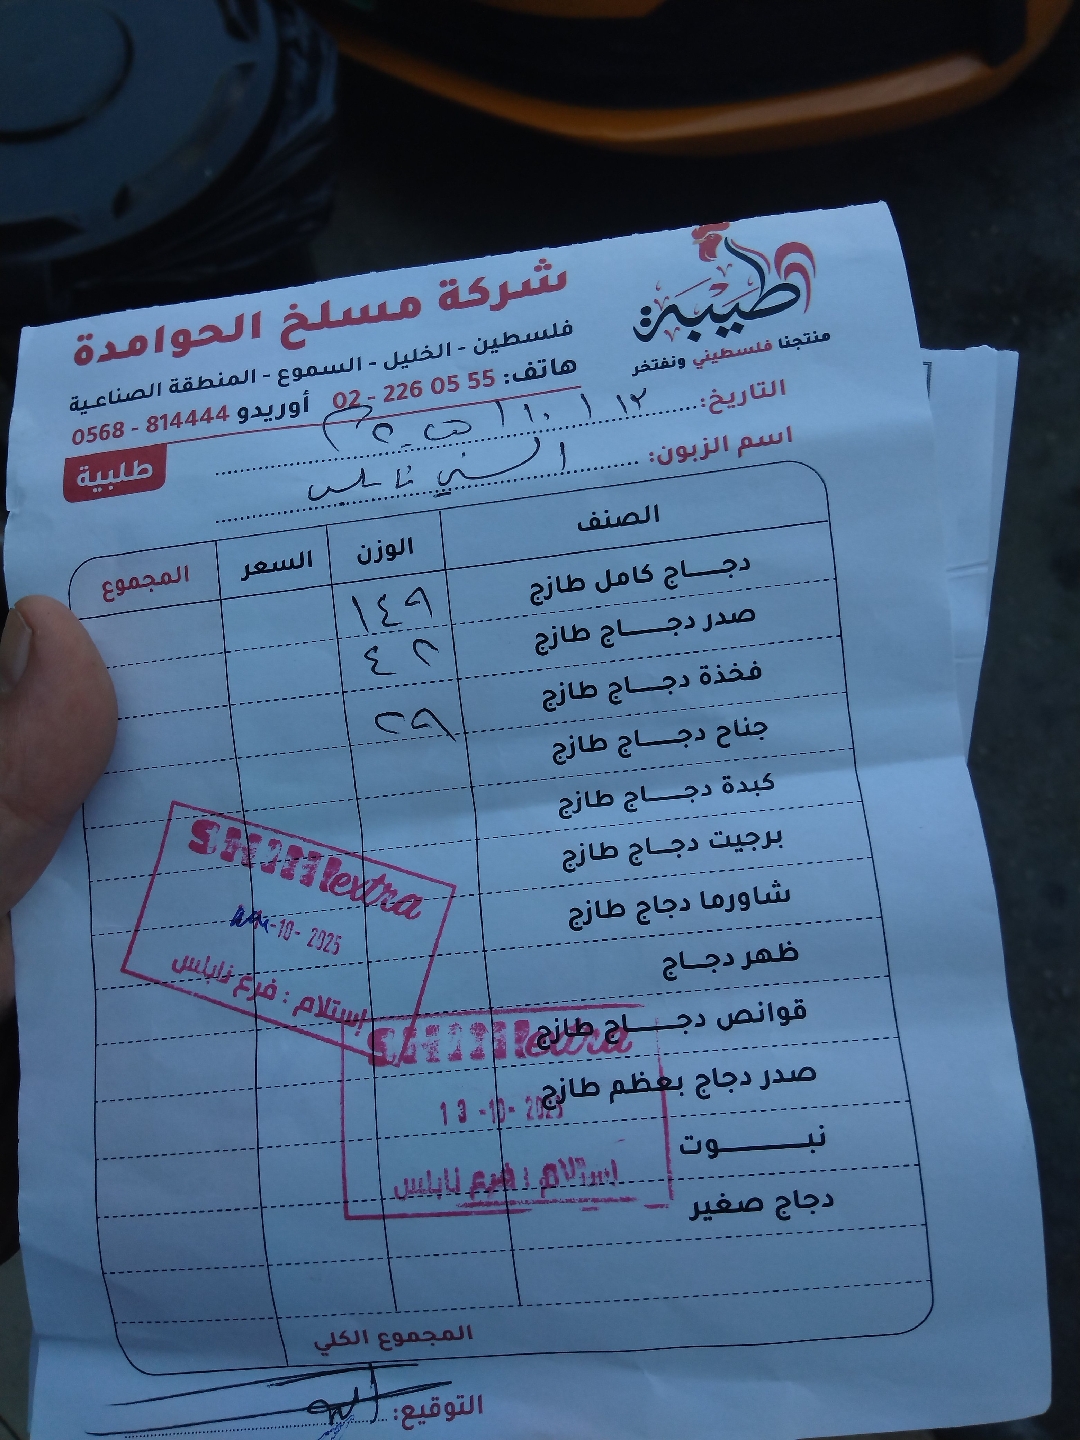 طيبة
منتجنا فلسطيني ونفتخر
شركة مسلخ الحوامدة
فلسطين - الخليل - السموع - المنطقة الصناعية
هاتف: 02 - 226 05 55 أوريدو 0568 - 814444
طلبية
التاريخ: ١٢ / ١٠ /
اسم الزبون: الشني نابلس
الصنف الوزن السعر المجموع
دجـــاج كامل طازج ١٤٩
صدر دجـــــاج طازج ٤٢
فخذة دجــــاج طازج ٢٩
جناح دجـــــاج طازج
كبدة دجـــــاج طازج
برجيت دجــاج طازج
شاورما دجاج طازج
ظهر دجــاج
قوانص دجـــــاج طازج
صدر دجاج بعظم طازج
نبـــــــوت
دجاج صغير
المجموع الكلي
التوقيع:
extra
-10- 2025
إستلام : فرع نابلس
extra
13 -10- 2025
إستلام : فرع نابلس